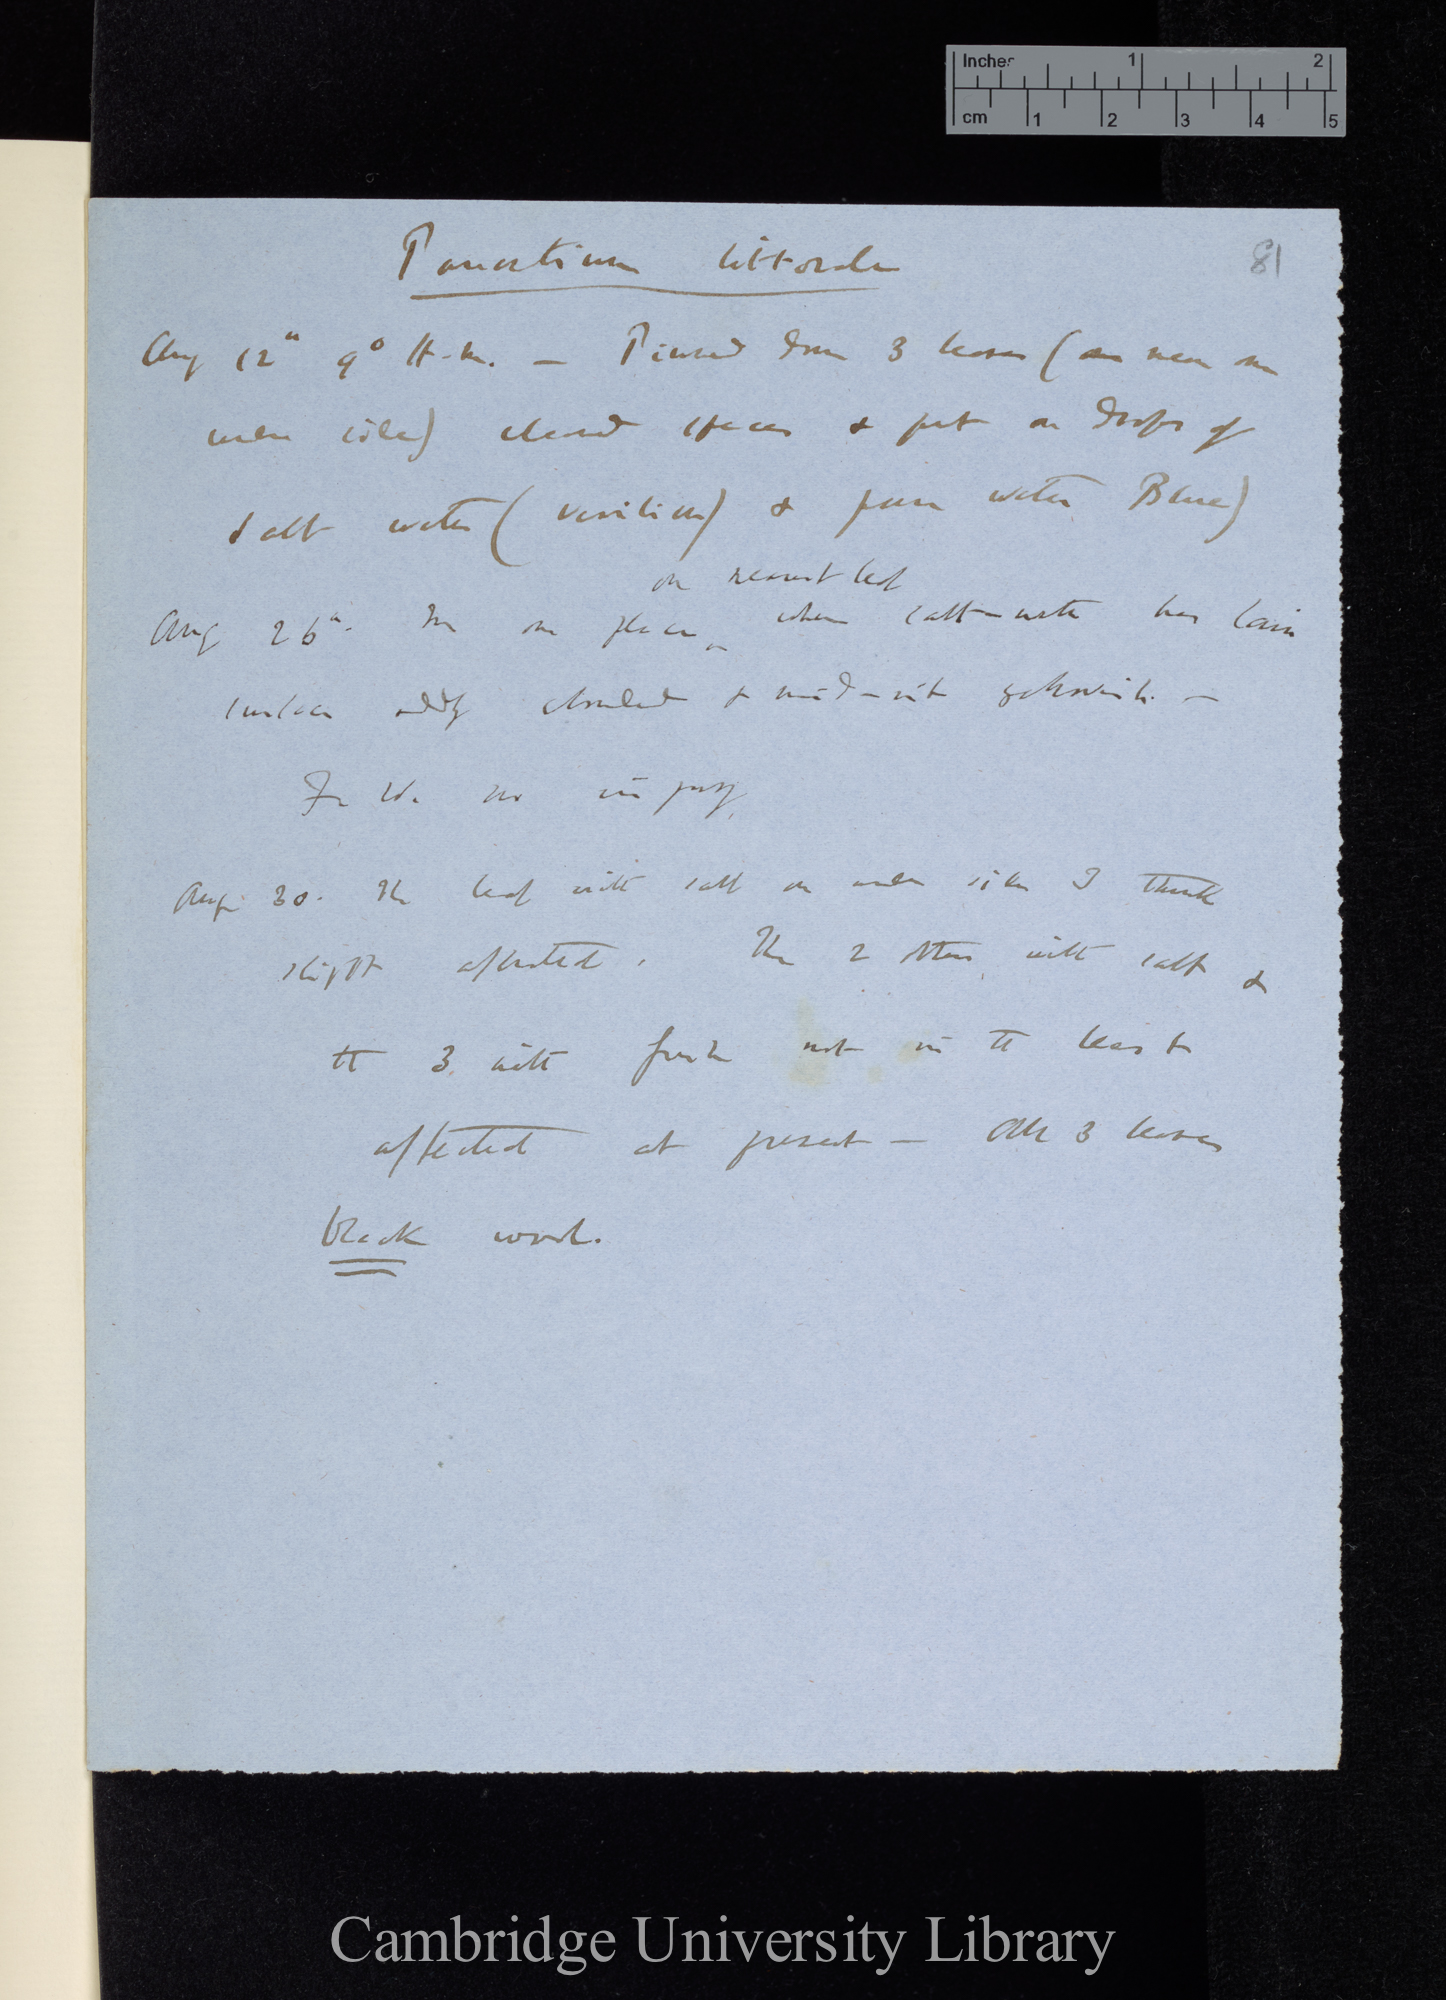 Inches 1 2
cm 1 2 3 4 5
Pancratium littorale
81
Aug 12th 9° A.m. — Pinned down 3 leaves (one near on
under side) cleaned spaces & put on drops of
Salt water (vermilion) & pure water Blue)
on nearest leaf
Aug 26th. The one place, where salt-water has lain
surface oddly clouded & mid-rib yellowish. —
Fr. W. no injury,
Aug 30. The leaf with salt on under side I think
slightly affected. The 2 others with salt &
the 3 with fresh not in the least
affected at present — All 3 leaves
black wool.
Cambridge University Library